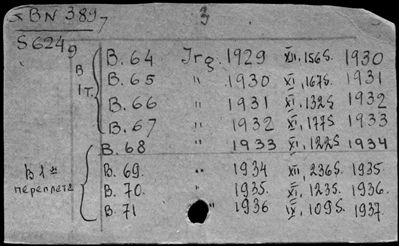 BN 3897
3
S 6249
В 1 т.
B. 64 Jrg. 1929 XII, 156 S. 1930
B. 65 " 1930 XI, 167 S. 1931
B. 66 " 1931 XI, 132 S 1932
B. 67 " 1932 XI, 177 S 1933
B. 68 " 1933 XI, 122 S 1934
В 1-м переплете
B. 69. " 1934 XII, 236 S. 1935
B. 70. " 1935. XI, 123 S. 1936.
B. 71 1936 IX, 109 S. 1937.